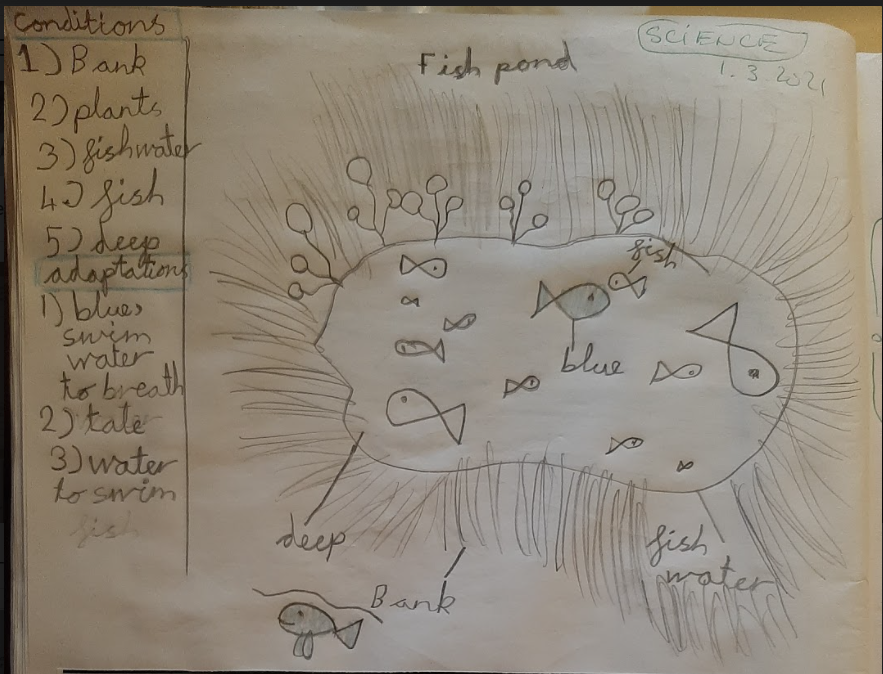 Conditions
1) Bank
2) plants
3) fishwater
4) fish
5) deep
adaptations
1) blues
swim
water
to breath
2) tale
3) water
to swim
fish
Fish pond
SCIENCE
1.3.2021
fish
blue
deep
Bank
fish
water